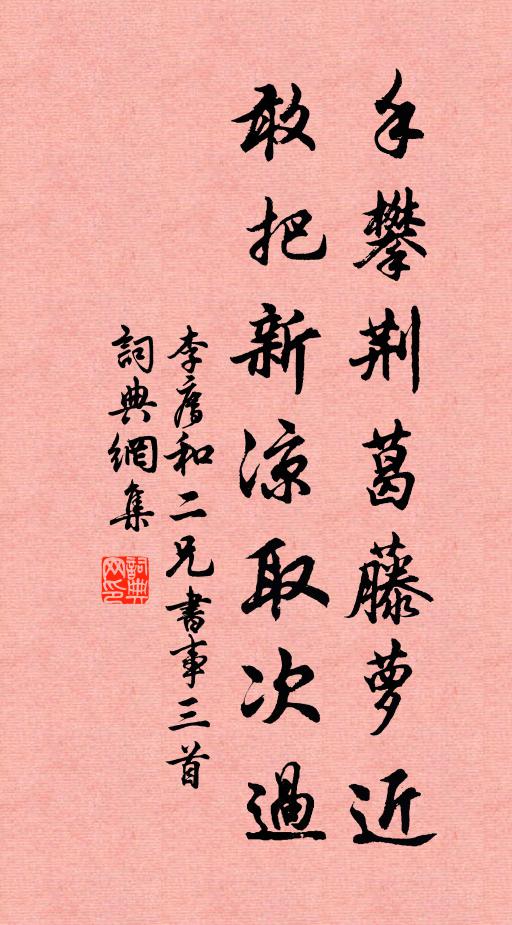 手攀荆葛藤萝近
敢把新涼取次過
李和二兄書事三首
詞典網集
詞典
网印